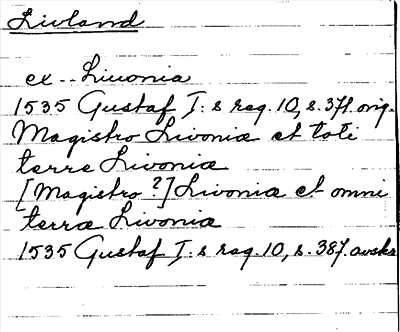 Livland
ex. Liuonia
1535 Gustaf I:s reg. 10, s. 371. orig.
Magistro Livoniæ et toti
terre Livoniæ
[Magistro ?] Livoniæ et omni
terræ Livoniæ
1535 Gustaf I:s reg. 10, s. 387. avskr